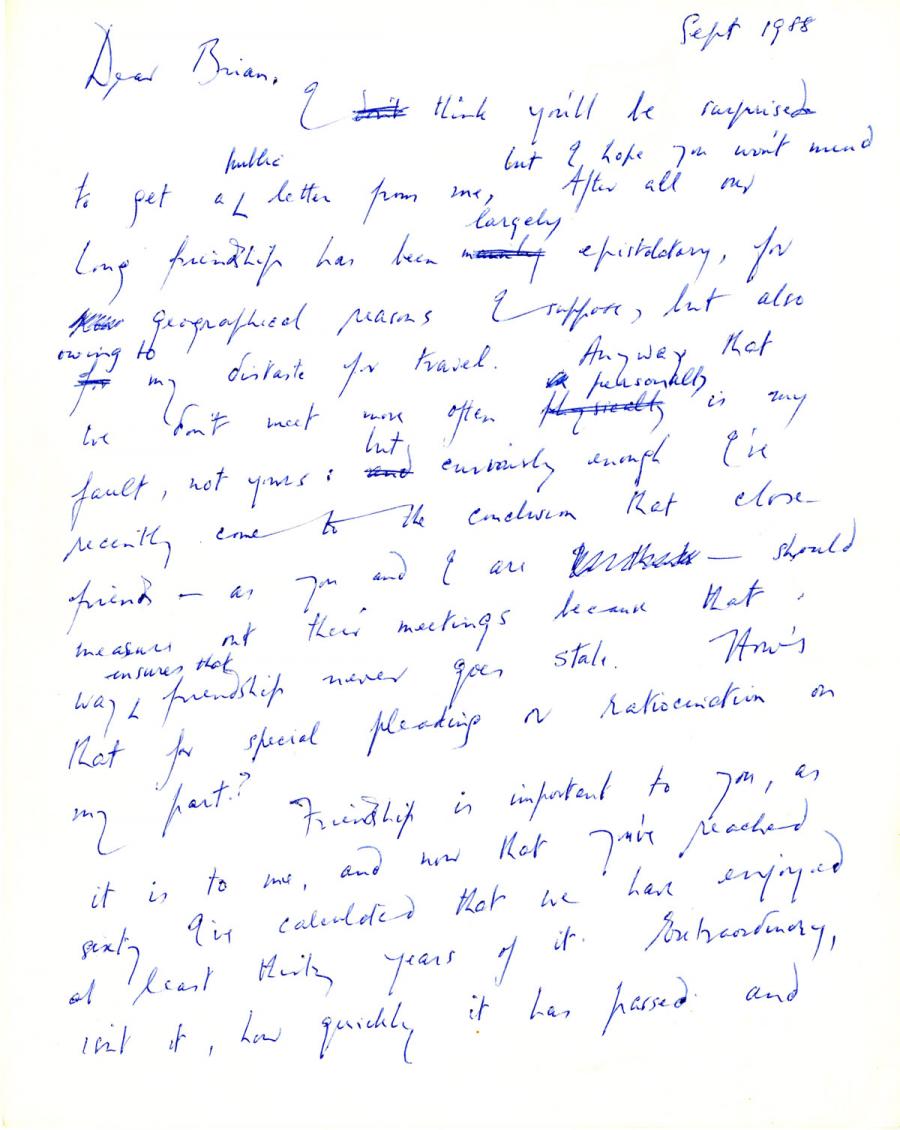 Sept 1988
Dear Brian,
I don't think you'll be surprised
public but I hope you won't mind
to get a letter from me, After all our
largely
long friendship has been mainly epistolatory, for
geographical reasons I suppose, but also
owing to
for my distaste for travel. Anyway that
personally
we don't meet more often physically is my
but
fault, not yours: and curiously enough I've
recently come to the conclusion that close
friends — as you and I are — should
measure out their meetings because that
ensures that
way friendship never goes stale. How's
that for special pleading or ratiocination on
my part?
Friendship is important to you, as
it is to me, and now that you've reached
sixty I've calculated that we have enjoyed
at least thirty years of it. Extraordinary,
isn't it, how quickly it has passed and